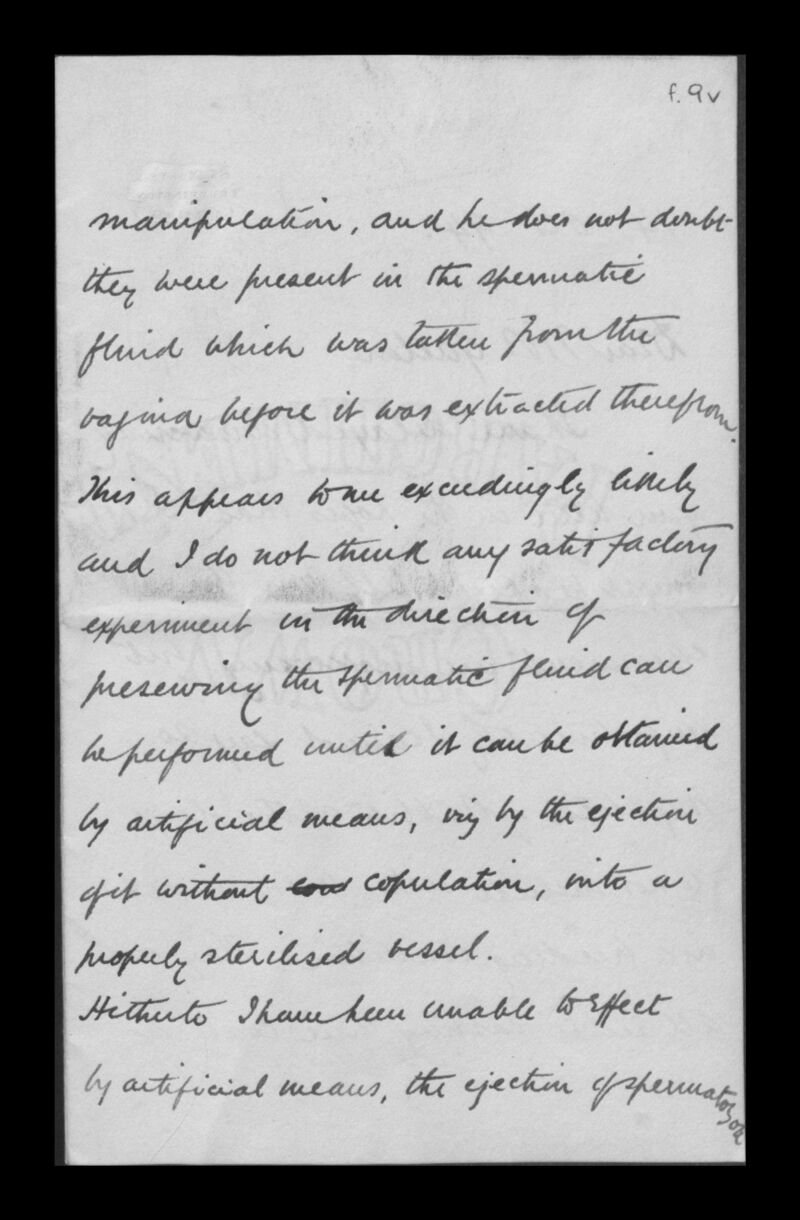 f. 9v
manipulation, and he does not doubt
they were present in the spermatic
fluid which was taken from the
vagina before it was extracted therefrom.
This appears to me exceedingly likely
and I do not think any satisfactory
experiment in the direction of
preserving the spermatic fluid can
be performed until it can be obtained
by artificial means, viz by the ejection
of it without copulation, into a
properly sterilised vessel.
Hitherto I have been unable to effect
by artificial means, the ejection of spermatozoa